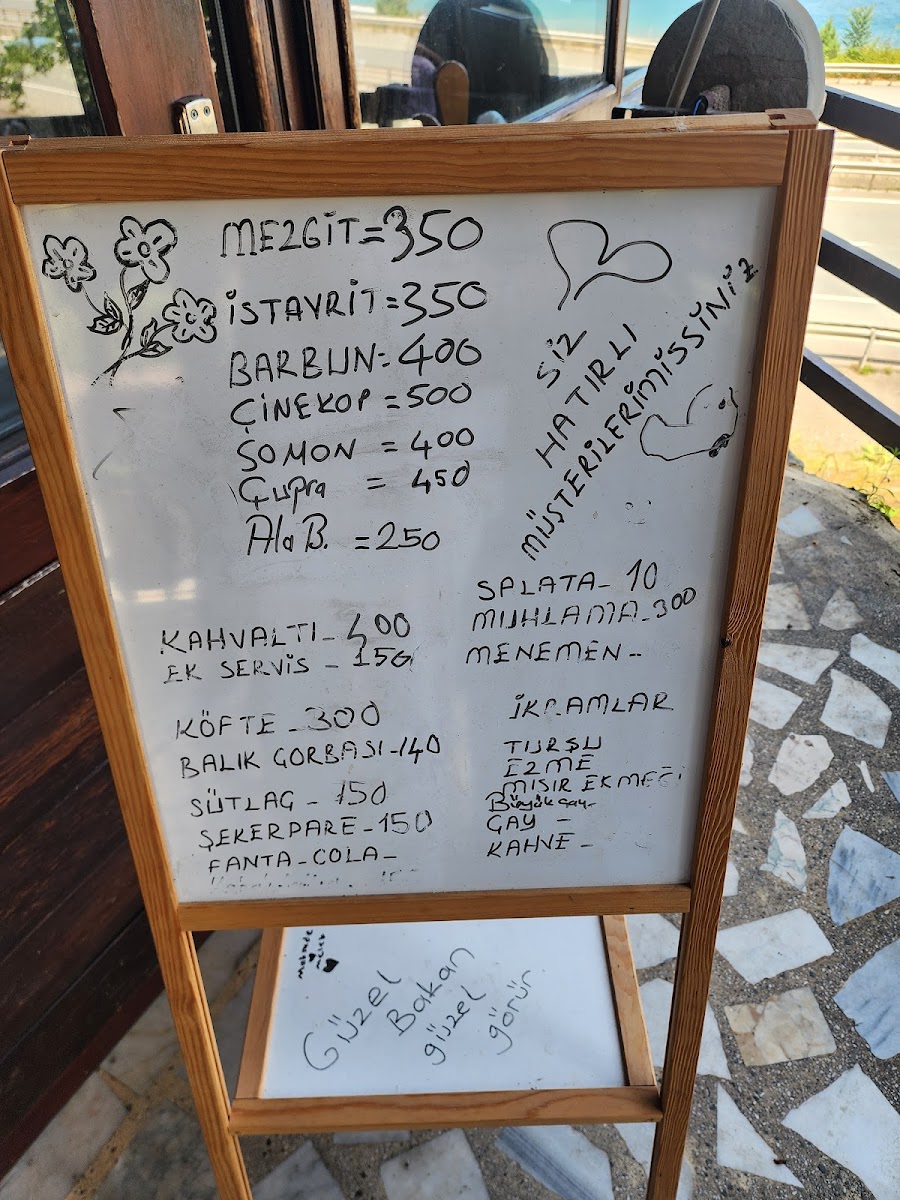 MEZGİT=350
İSTAVRİT=350
BARBUN=400
ÇİNEKOP=500
SOMON = 400
Çupra = 450
Ala B. =250
SİZ
HATIRLI
MÜŞTERİLERİMİSSİNİZ
KAHVALTI-400
EK SERVİS - 150
KÖFTE - 300
BALIK ÇORBASI-140
SÜTLAÇ - 150
ŞEKERPARE-150
FANTA-COLA-
SALATA- 10
MUHLAMA-300
MENEMEN--
İKRAMLAR
TURŞU
EZME
MISIR EKMEĞİ
Büyük çay-
ÇAY -
KAHVE -
Güzel
Bakan
güzel
görür